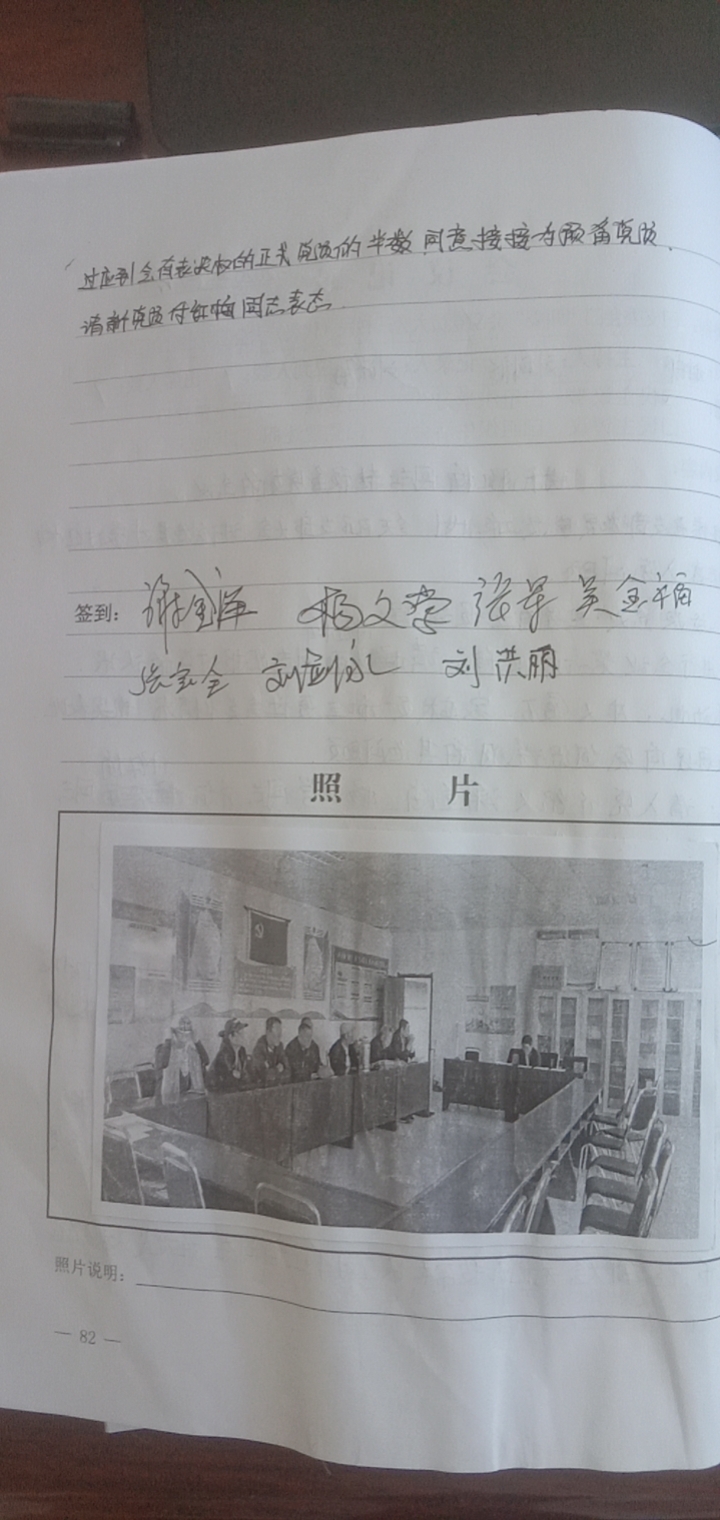 过应到会有表决权的正式党员的半数,同意接接为预备党员.
请新党员付红梅同志表态.
签到: 谢金海 杨文学 张军 吴金福
张宝全 刘 刘洪丽
照 片
照片说明:
— 82 —